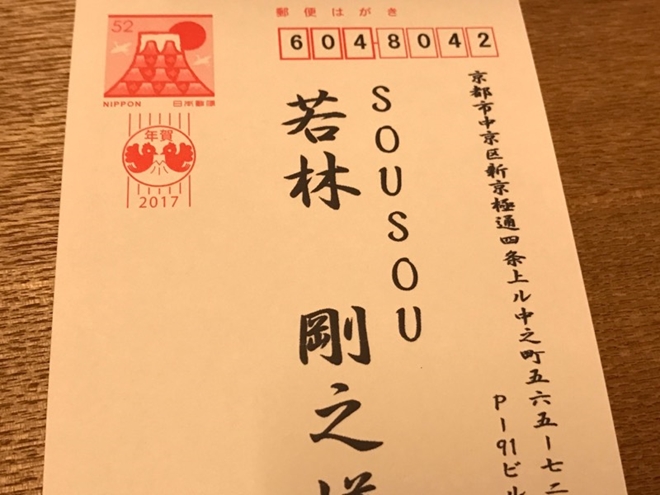 郵便はがき
6048048042
52
NIPPON 日本郵便
年賀
2017
京都市中京区新京極通四条上ル中之町五六五ー七二
P-91ビル
SOUSOU
若林 剛之様